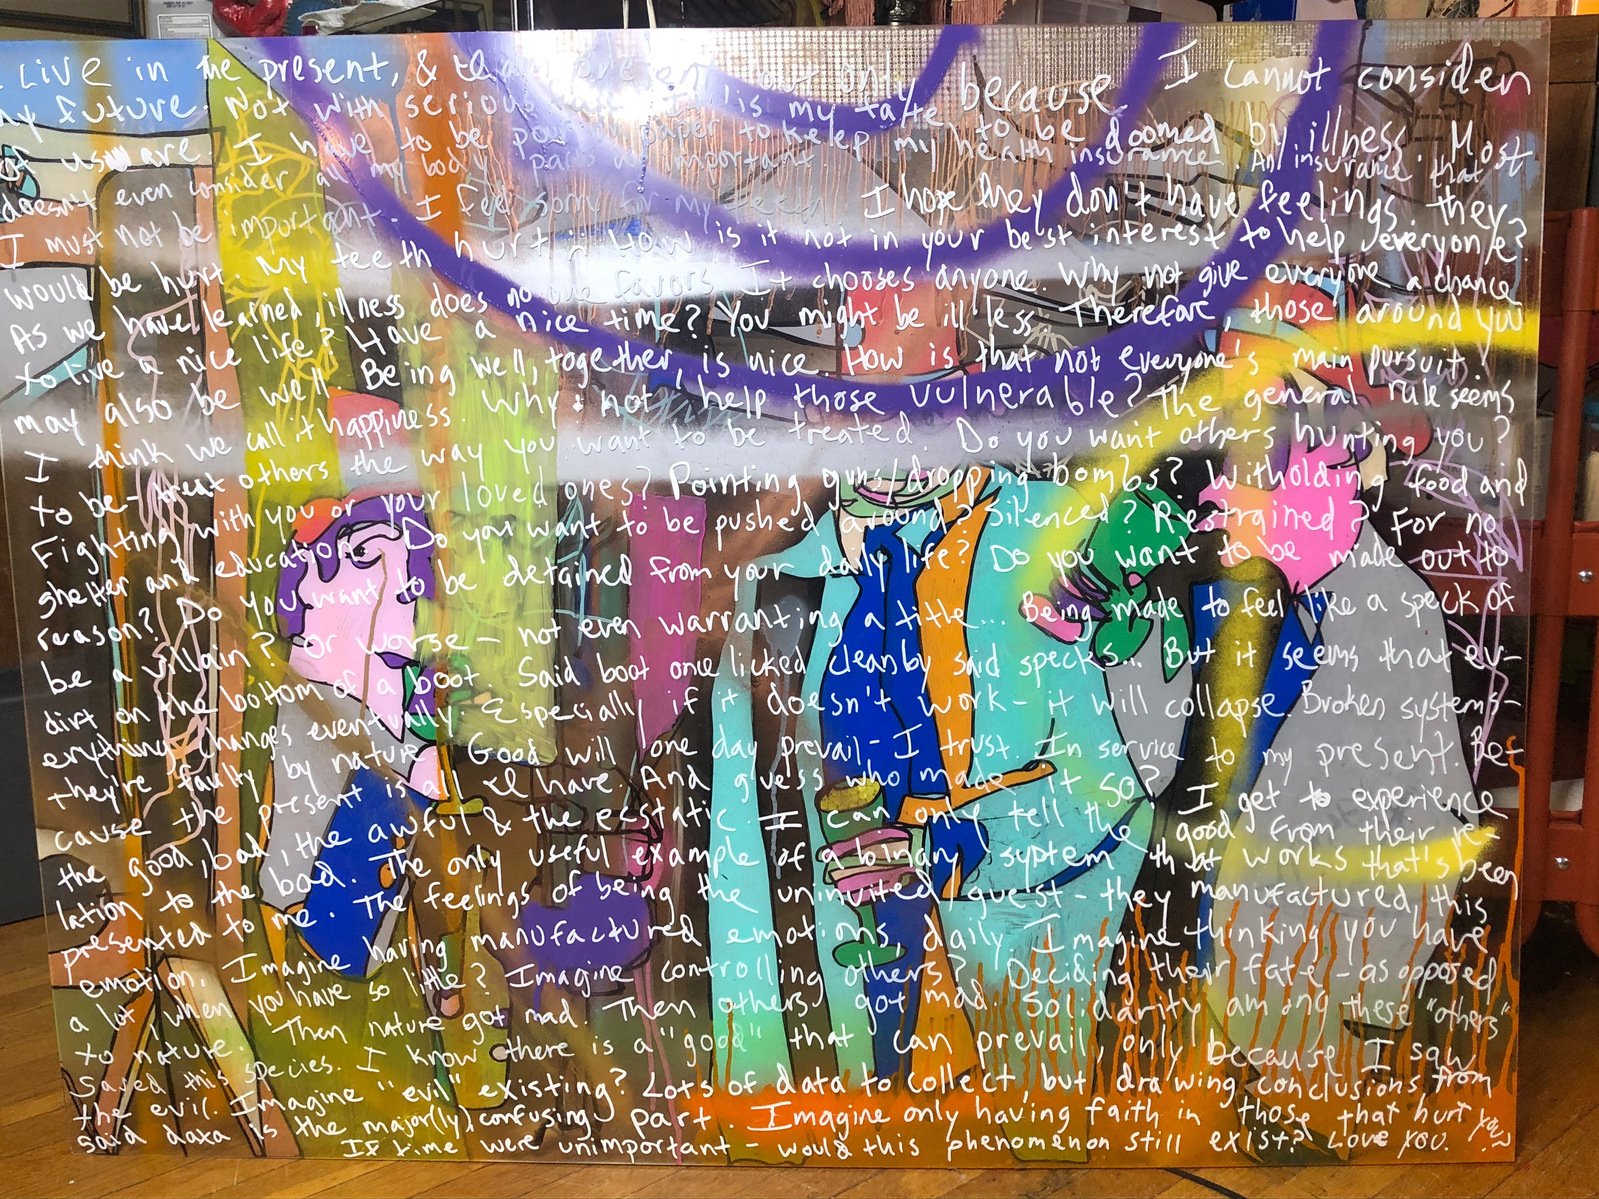 I Live in the present, & that present but only because I cannot consider
My future. Not with serious is my fate to be doomed by illness. Most
of us are. I have to be poor on paper to keep my health insurance. An insurance that
doesn't even consider all my body parts as important. I hope they don't have feelings. they
I must not be important. I feel sorry for my teeth.
would be hurt. My teeth hurt. How is it not in your best interest to help everyone?
As we have learned, illness does no one favors. It chooses anyone. Why not give everyone a chance
to live a nice life? Have a nice time? You might be ill less. Therefore, those around you
may also be well. Being well, together, is nice. How is that not everyone's main pursuit?
I think we call it happiness. Why not help those vulnerable? The general rule seems
to be - treat others the way you want to be treated. Do you want others hunting you?
Fighting with you or your loved ones? Pointing guns/dropping bombs? Witholding food and
shelter and education. Do you want to be pushed around? Silenced? Restrained? For no
reason? Do you want to be detained from your daily life? Do you want to be made out to
be a villain? Or worse - not even warranting a title... Being made to feel like a speck of
dirt on the bottom of a boot. Said boot once licked clean by said specks... But it seems that ev-
erything changes eventually. Especially if it doesn't work - it will collapse. Broken systems -
they're faulty by nature. Good will one day prevail - I trust. In service to my present. Be-
cause the present is all I have. And guess who made it so? I get to experience
the good, bad, the awful & the ecstatic. I can only tell the good from their re-
lation to the bad. The only useful example of a binary system that works that's been
presented to me. The feelings of being the uninvited guest - they manufactured this
emotion. Imagine having manufactured emotions, daily. Imagine thinking you have
a lot, when you have so little? Imagine controlling others? Deciding their fate - as opposed
to nature. Then nature got mad. Then others got mad. Solidarity among these "others"
saved this species. I know there is a "good" that can prevail, only because I saw
the evil. Imagine "evil" existing? Lots of data to collect but drawing conclusions from
said data is the major(ly) confusing part. Imagine only having faith in those that hurt you.
If time were unimportant - would this phenomenon still exist? Love you.